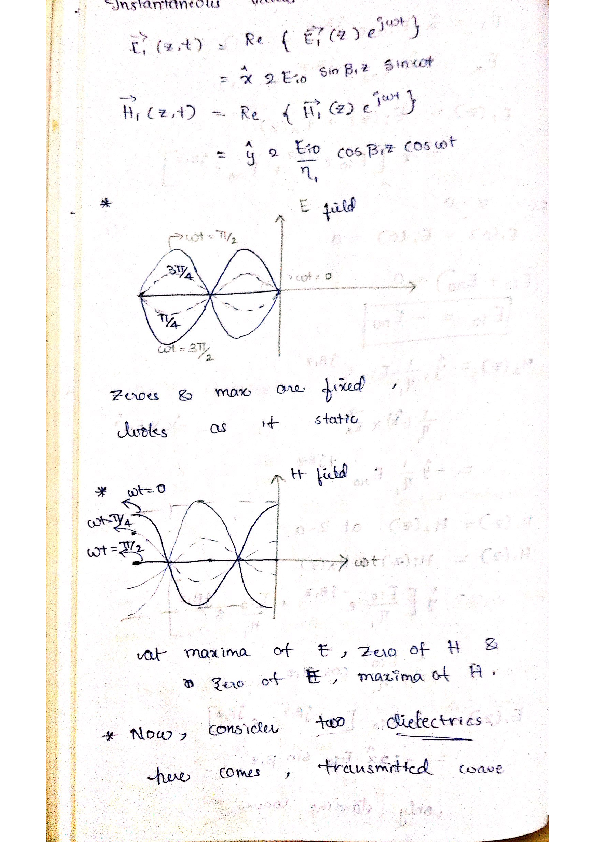 Instantaneous values
E₁ (z,t) = Re { E₁ (z) e^jωt }
= x̂ 2 Eio sin β₁z sin ωt
H₁ (z,t) = Re { H₁ (z) e^jωt }
= ŷ 2 Eio/η₁ cos β₁z cos ωt
* E field
ωt = π/2
3π/4
ωt = 0
π/4
ωt = 3π/2
Zeroes & max are fixed ,
as if static
* ωt=0 H field
ωt=π/4
ωt = π/2
ωt
at maxima of E , Zero of H &
Zero of E , maxima of H .
* Now, consider two dielectrics
here comes , transmitted wave